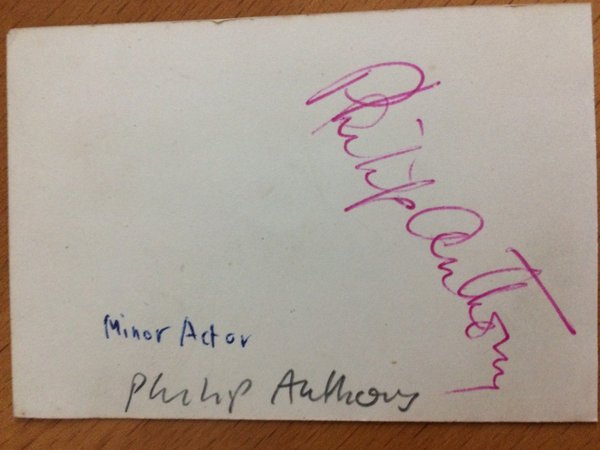 Philip Anthony
Minor Actor
Philip Anthony